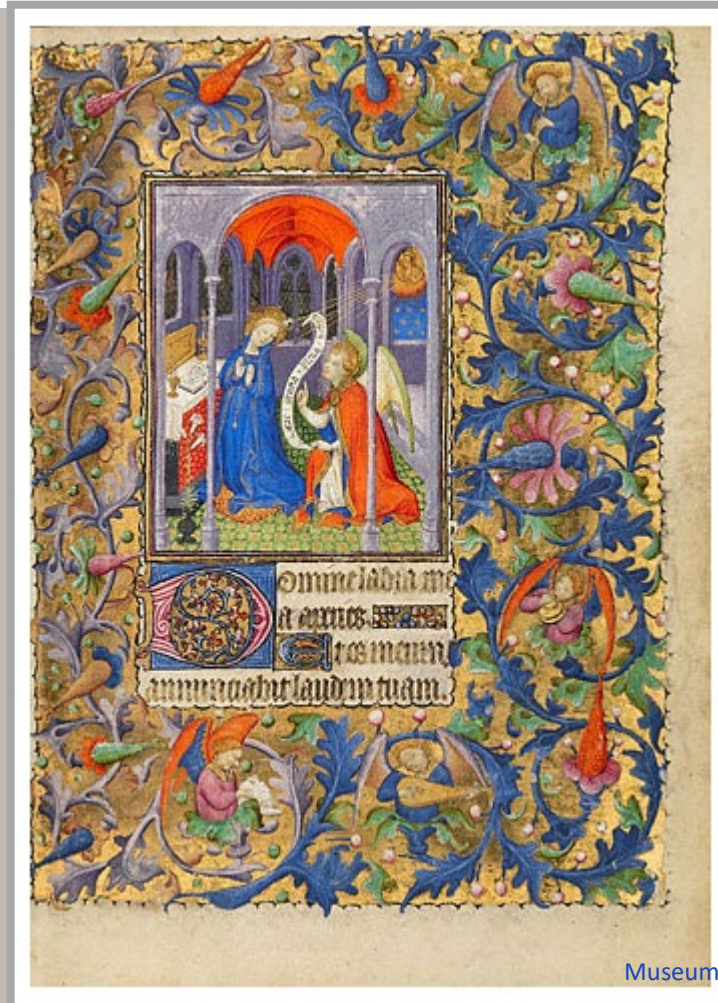 Domine labia me
a aperies.
Et os meum
annunciabit laudem tuam.
Museum